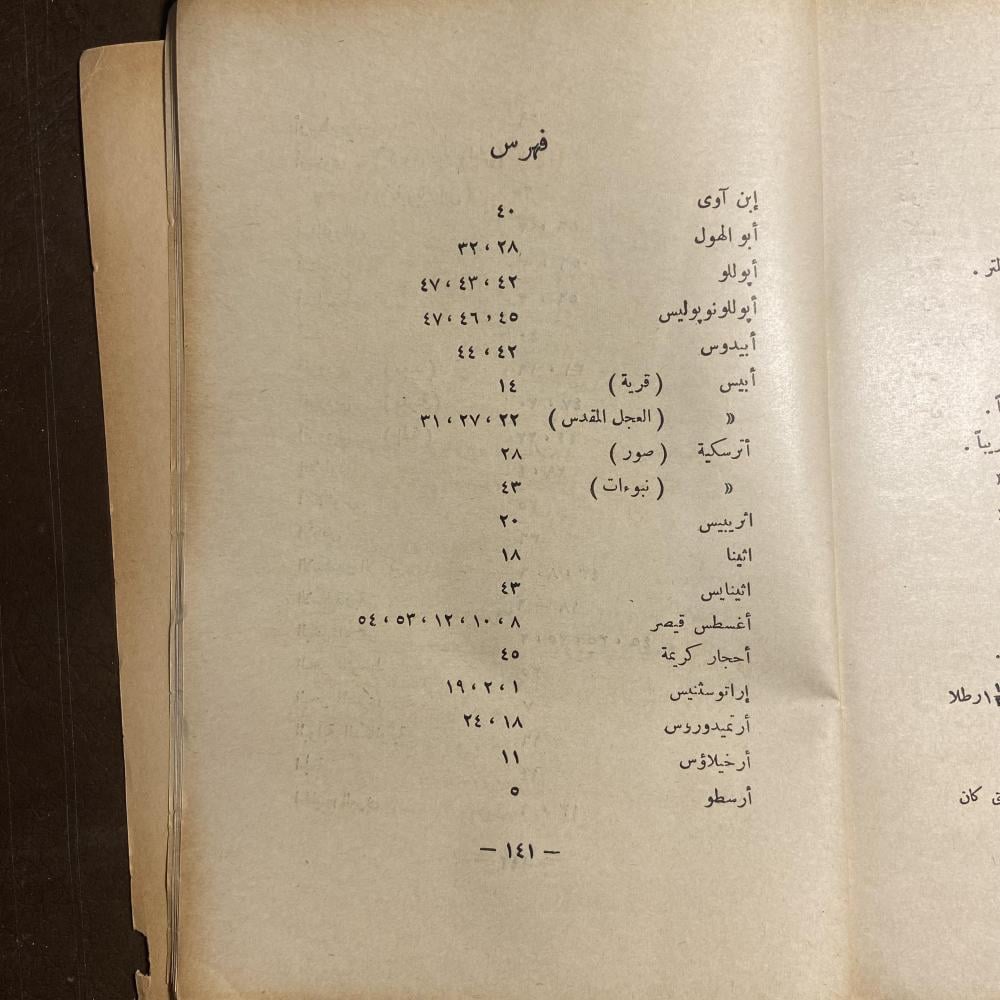 فهرس
إبن آوى ٤٠
أبو الهول ٢٨ ، ٣٢
أپوللو ٤٢ ، ٤٣ ، ٤٧
أپوللونوپوليس ٤٥ ، ٤٦ ، ٤٧
أبيدوس ٤٢ ، ٤٤
أبيس ( قرية ) ١٤
« ( العجل المقدس ) ٢٢ ، ٢٧ ، ٣١
أترسكية ( صور ) ٢٨
« ( نبوءات ) ٤٣
اثريبيس ٢٠
اثينا ١٨
اثينايس ٤٣
أغسطس قيصر ٨ ، ١٠ ، ١٢ ، ٥٣ ، ٥٤
أحجار كريمة ٤٥
إراتوسثنيس ١ ، ٢ ، ١٩
أرتميدوروس ١٨ ، ٢٤
أرخيلاؤس ١١
أرسطو ٥
— ١٤١ —